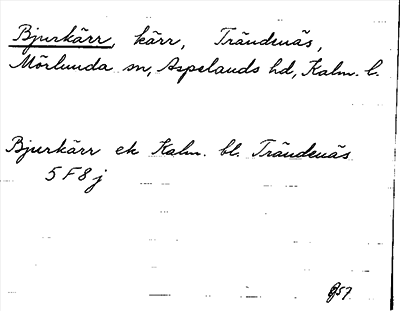 Bjurkärr, kärr, Trändenäs,
Mörlunda sn, Aspelands hd, Kalm. l.
Bjurkärr ek Kalm. bl. Trändenäs
5 F 8 j